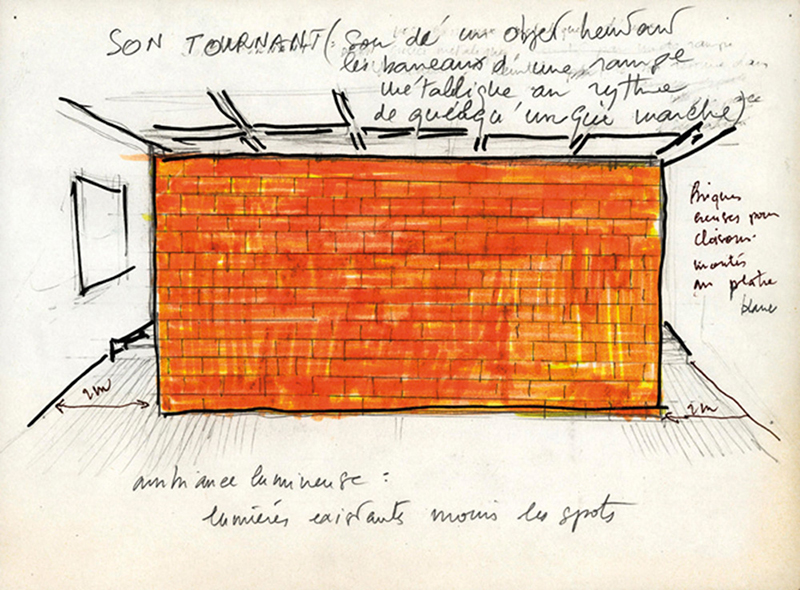 SON TOURNANT (Son de un objet heurtant
les barreaux d'une rampe
métallique au rythme
de quelqu'un qui marche)
Briques
creuses pour
cloisons
montés
au platre
blanc
2m
2m
ambiance lumineuse :
lumières existants moins les spots